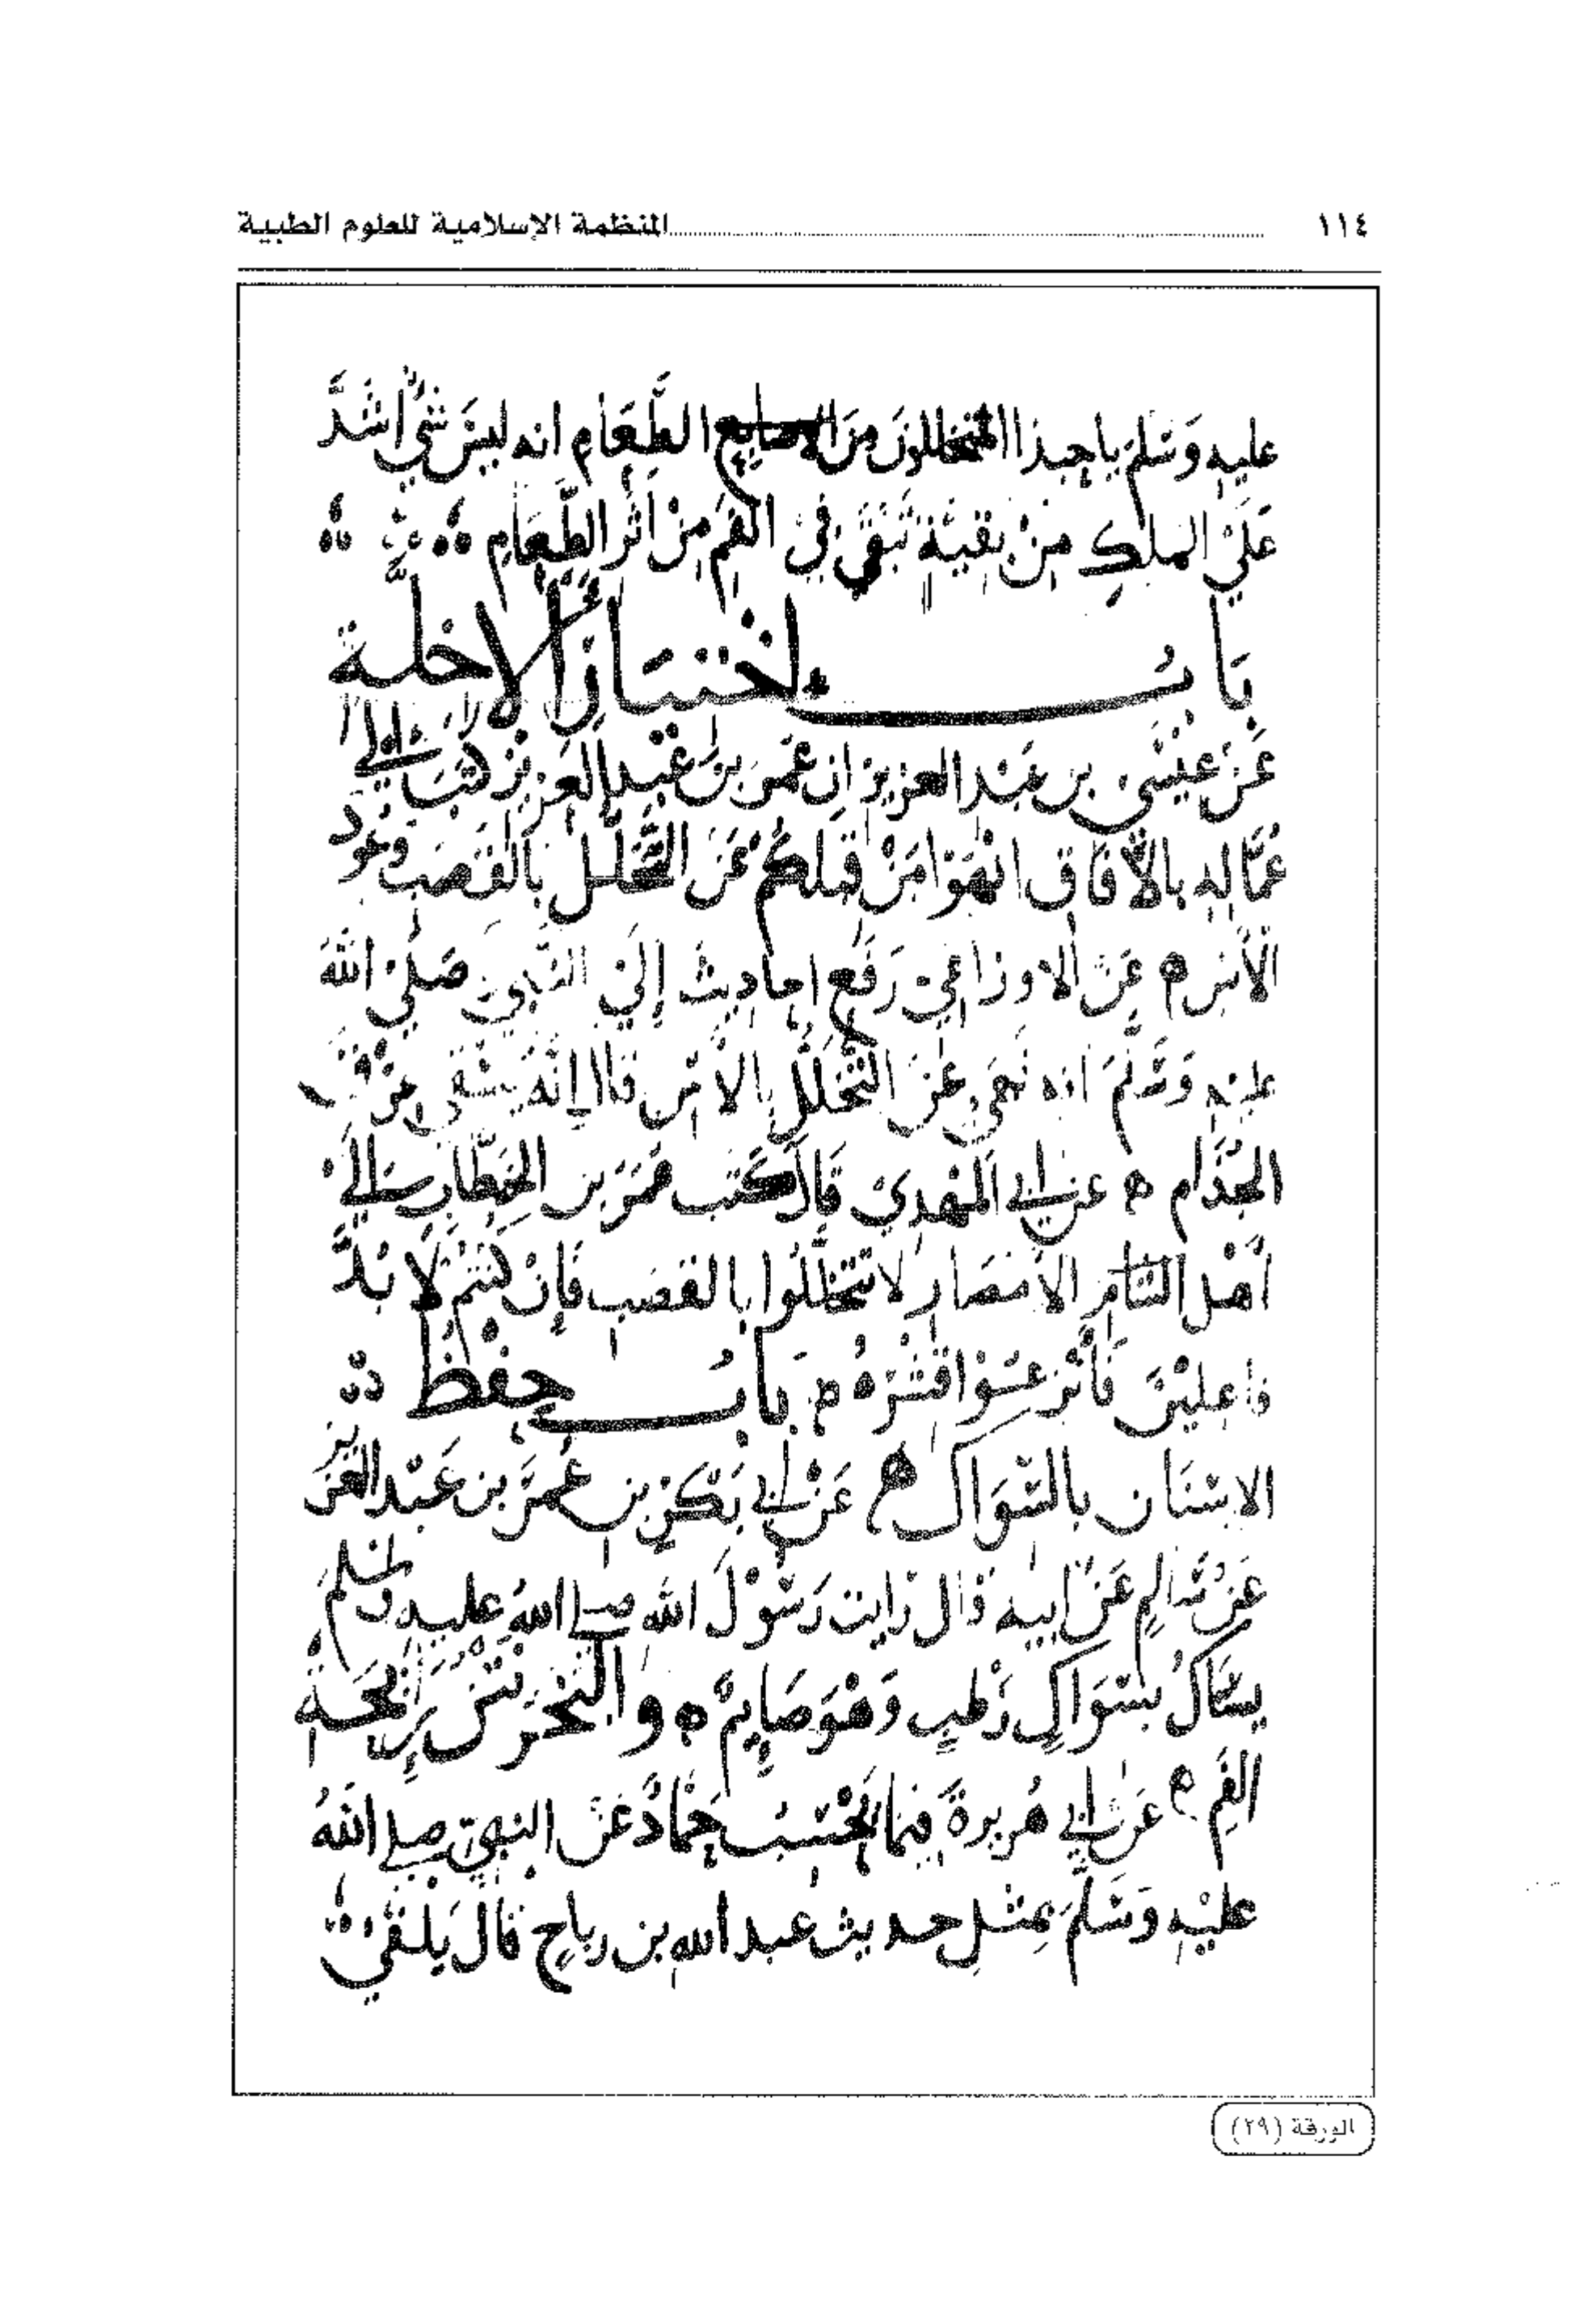 ١١٤ المنظمة الإسلامية للعلوم الطبية
عليه وَسَلمَ يا حبذا المتخللونَ مِنَ الطَّعَامِ انه ليسَ شيءٌ اشَدَّ
عَلىَ الملكِ مِنْ بقيَّةٍ تَبْقَى فِي الفَمِ مِنْ اَثَرِ الطَّعَامِ
بَابُ اختيَارِ الاخلة
عَنْ عيسَى بن عَبْد العزيز ان عُمَر بن عَبْد العَزيز كتبَ إلى
عُمَّاله بالآفَاق انْهَوا مَنْ قبلكُمْ عَنَ التَّخَلّل بالقَصَب وعُود
الآس عَنَ الاوزاعي رَفَع احاديث إلىَ النَّبي صَلى اللهُ
عليْهِ وَسَلمَ انه نَهَى عَنَ التَّخَلُّلِ بالآس قال إنَّهُ يسْقي عِرْق
الجُذَام عن ابي المَهْدِيْ قَالَ كَتب عُمَرَ بن الخَطَّاب إلىَ
اَهْل الشام الامْصَار لَا تتخلَّلُوا بالقصَب فَإنْ كنتمْ لَا بُدَّ
فاعليْنَ فَانْزِعُوا قشْرَهُ بَابُ حِفْظ
الاسْنَان بالسِّوَاك عَنْ ابي بَكْرِ بن عُمَرَ بن عَبْد العَزيز
عَنْ سَالِمٍ عَنْ ابيه قال رَايت رَسُوْلَ الله صلى اللهُ عليه وسلمَ
يسْتاكُ بسوَاكٍ رَطْبٍ وَهْوَ صَايِمٌ والبَخَرْ نَتْنُ رِيحَةِ
الفَمِ عَنْ ابي هُريرةَ فيمَا يَحْسَبُ حَمَّادٌ عَن النبي صلى اللهُ
عليْهِ وَسَلَّمَ بمِثْلِ حديث عبد الله بن رباحٍ قالَ يَلقىْ
الورقة (٢٩)